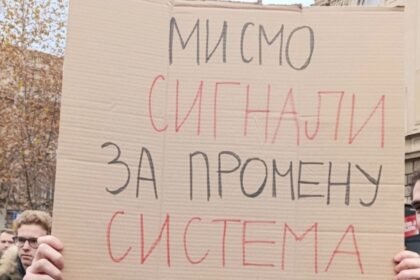 МИ СМО
СИГНАЛИ
ЗА ПРОМЕНУ
СИСТЕМА